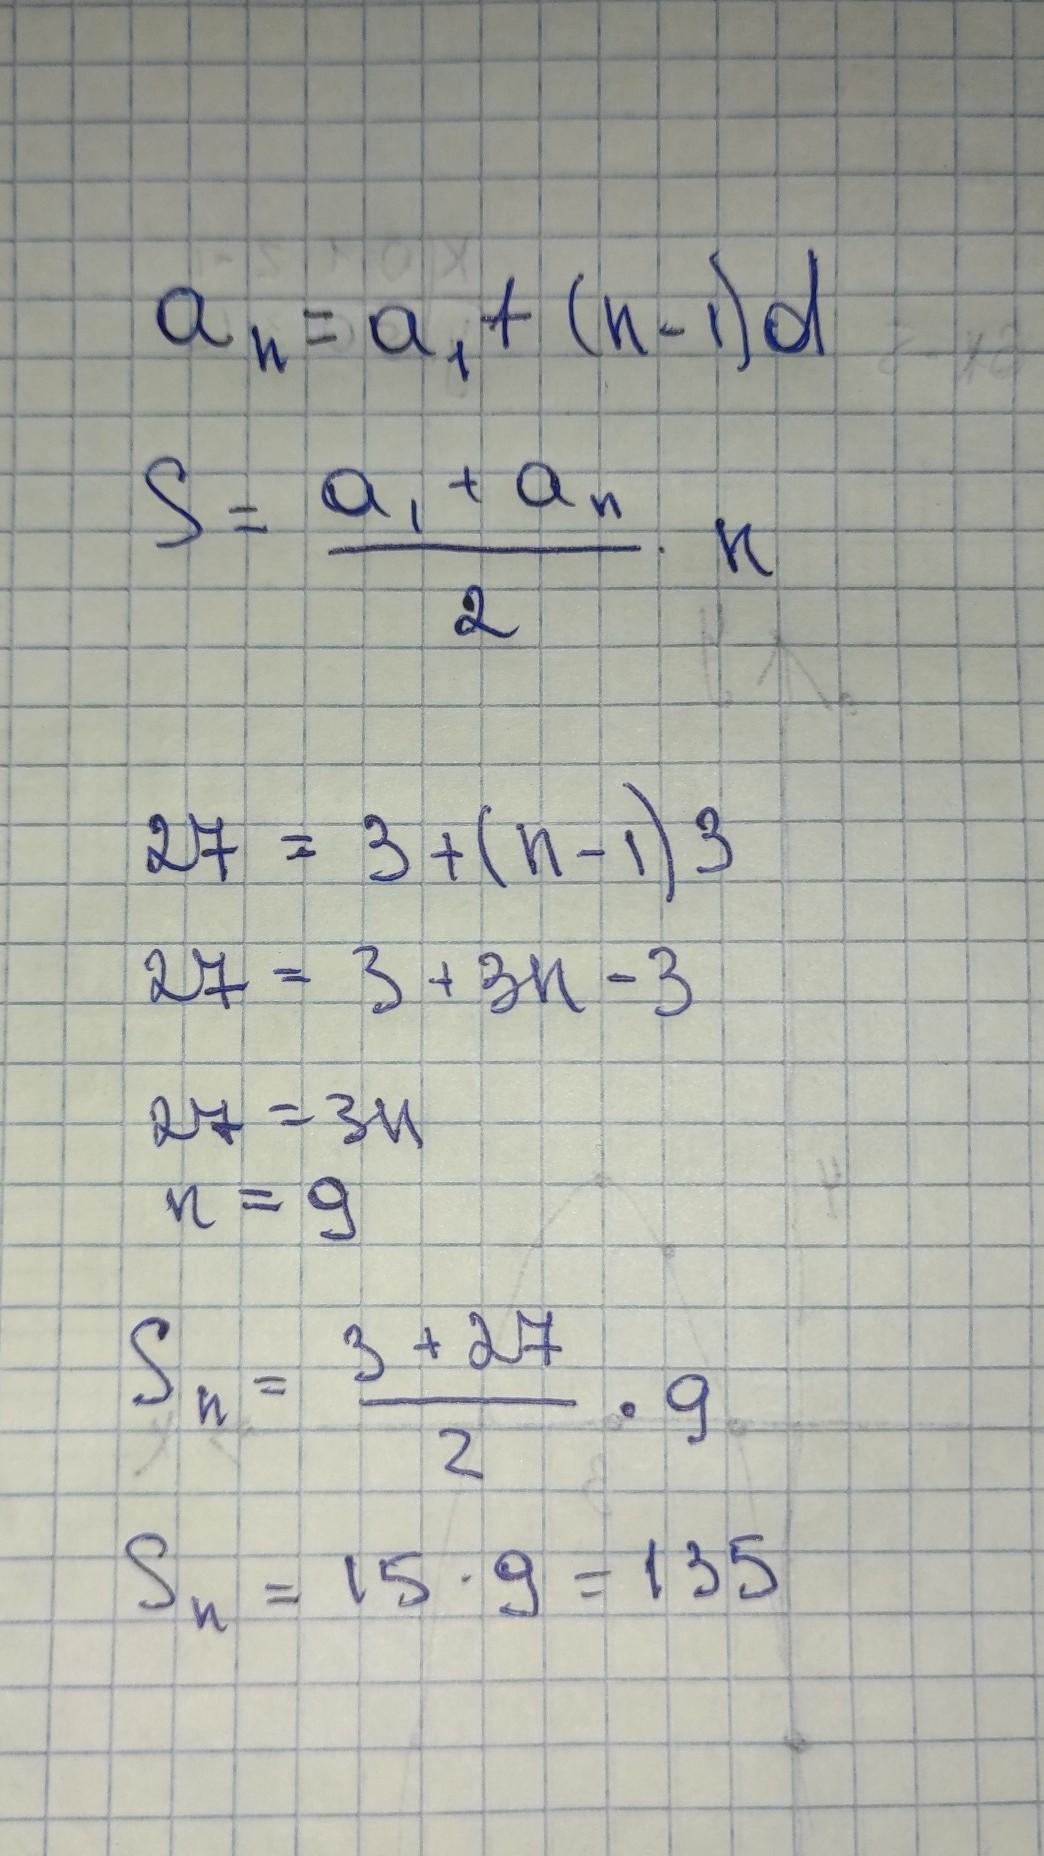 aₙ = a₁ + (n-1)d
S = (a₁ + aₙ)/2 · n
27 = 3 + (n-1)3
27 = 3 + 3n - 3
27 = 3n
n = 9
Sₙ = (3 + 27)/2 · 9
Sₙ = 15 · 9 = 135